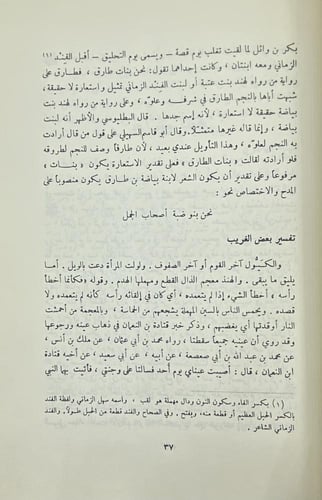 بكر بن وائل لما لقيت تغلب يوم قصة – ويسمى يوم التحليق – أقبل الفِنْد (١)
الزماني ومعه ابنتان، وكانت إحداهما تقول: نحن بنات طارق، فطارق على
رواية من رواه لهند بنت عتبة أو لبنت الفند الزماني تمثيل واستعارة لا حقيقة،
شبهت أباها بالنجم الطارق في شرفه وعلوه، وعلى رواية من رواه لهند بنت
بياضة حقيقة لا استعارة، لأنه إسم جدها. قال البطليوسي والأظهر أنه لبنت
بياضة، وإنما قاله غيرها متمثلاً. وقال أبو قاسم السهيلي على قول من قال أرادت
به النجم لعلوه، وهذا التأويل عندي بعيد، لأن طارقاً وصف للنجم لطروقه
فلو أرادته لقالت «بنات الطارق»، فعلى تقدير الاستعارة يكون «بنات»
مرفوعاً وعلى تقدير أن يكون الشعر لابنة بياضة بن طارق يكون منصوباً على
المدح والاختصاص نحو:
نحن بنو ضبة أصحاب الجمل
تفسير بعض الغريب
والكيول آخر القوم أو آخر الصفوف. ولولت المرأة دعت بالويل. أما
يليق ما يبقى. والهند معجم الذال القطع ومهملها الهدم. وقوله «فكأنما أخطأ
رأسه» أخطأ الشيء إذا لم يتعمده، أي كان في إلقائه رأسه كأنه لم يتعمده ولا
قصده. ويحمس الناس بالسين المهملة يشجعهم من الحماسة، وبالمعجمة من أحمشت
النار أوقدتها أي يغضبهم، وذكر خبر قتادة بن النعمان في ذهاب عينه ورجوعها
وقد روي أن عينيه جميعاً سقطتا، رواه محمد بن أبي عثمان، عن ملك بن أنس،
عن محمد بن عبد الله بن أبي صعصعة، عن أبيه، عن أبي سعيد، عن أخيه قتادة
ابن النعمان، قال: أصيبت عيناي يوم أحد فسالتا على وجنتي، فأتيت بهما النبي
(١) بكسر الفاء وسكون النون ودال مهملة هو لقب، وأسمه سهل الزماني ولفظة الفند
بالكسر الجبل العظيم أو قطعة منه، ويفتح. وفي الصحاح والفند قطعة من الجبل طولاً. والفند
الزماني الشاعر.
٣٧